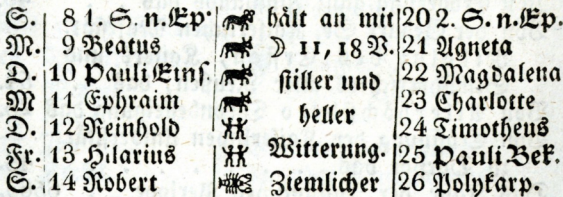 S. 8 1. S. n. Ep. hält an mit 20 2. S. n. Ep.
M. 9 Beatus ☽ 11, 18 V. 21 Agneta
D. 10 Pauli Eins. stiller und 22 Magdalena
M 11 Ephraim heller 23 Charlotte
D. 12 Reinhold 24 Timotheus
Fr. 13 Hilarius Witterung. 25 Pauli Bek.
S. 14 Robert Ziemlicher 26 Polykarp.